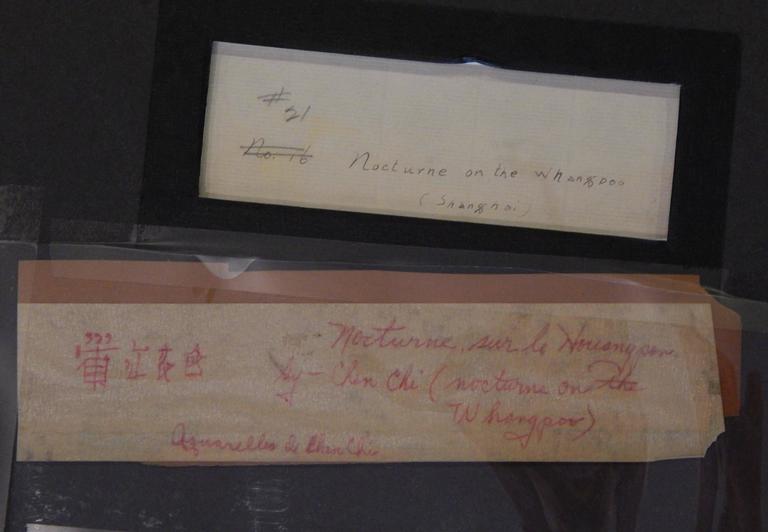 #
21
No. 16 Nocturne on the Whangpoo
(Shanghai)
Nocturne sur le Houangpou
by - Chen Chi (nocturne on the
Whangpoo)
江夜色
Aquarelles de Chen Chi